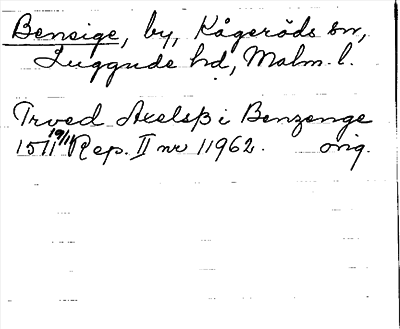 Bensige, by, Kågeröds sn,
Luggude hd, Malm. l.
Trued Axelsß i Benzenge
1511 19/11 Rep. II nr 11962. orig.